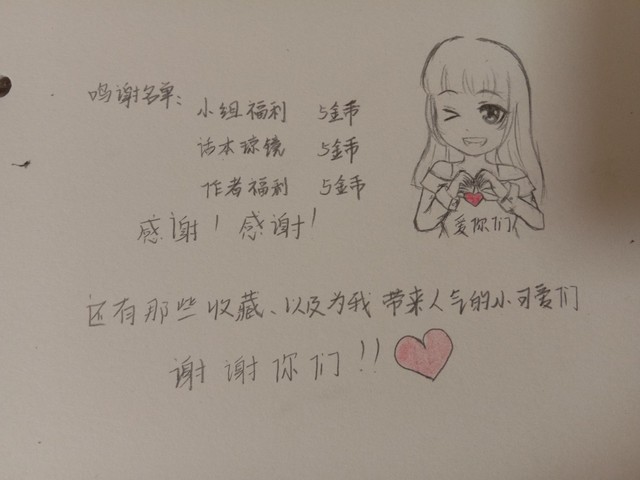 鸣谢名单：
小组福利 5金币
话本琼镜 5金币
作者福利 5金币
感谢！感谢！
爱你们
还有那些收藏、以及为我带来人气的小可爱们
谢谢你们！！